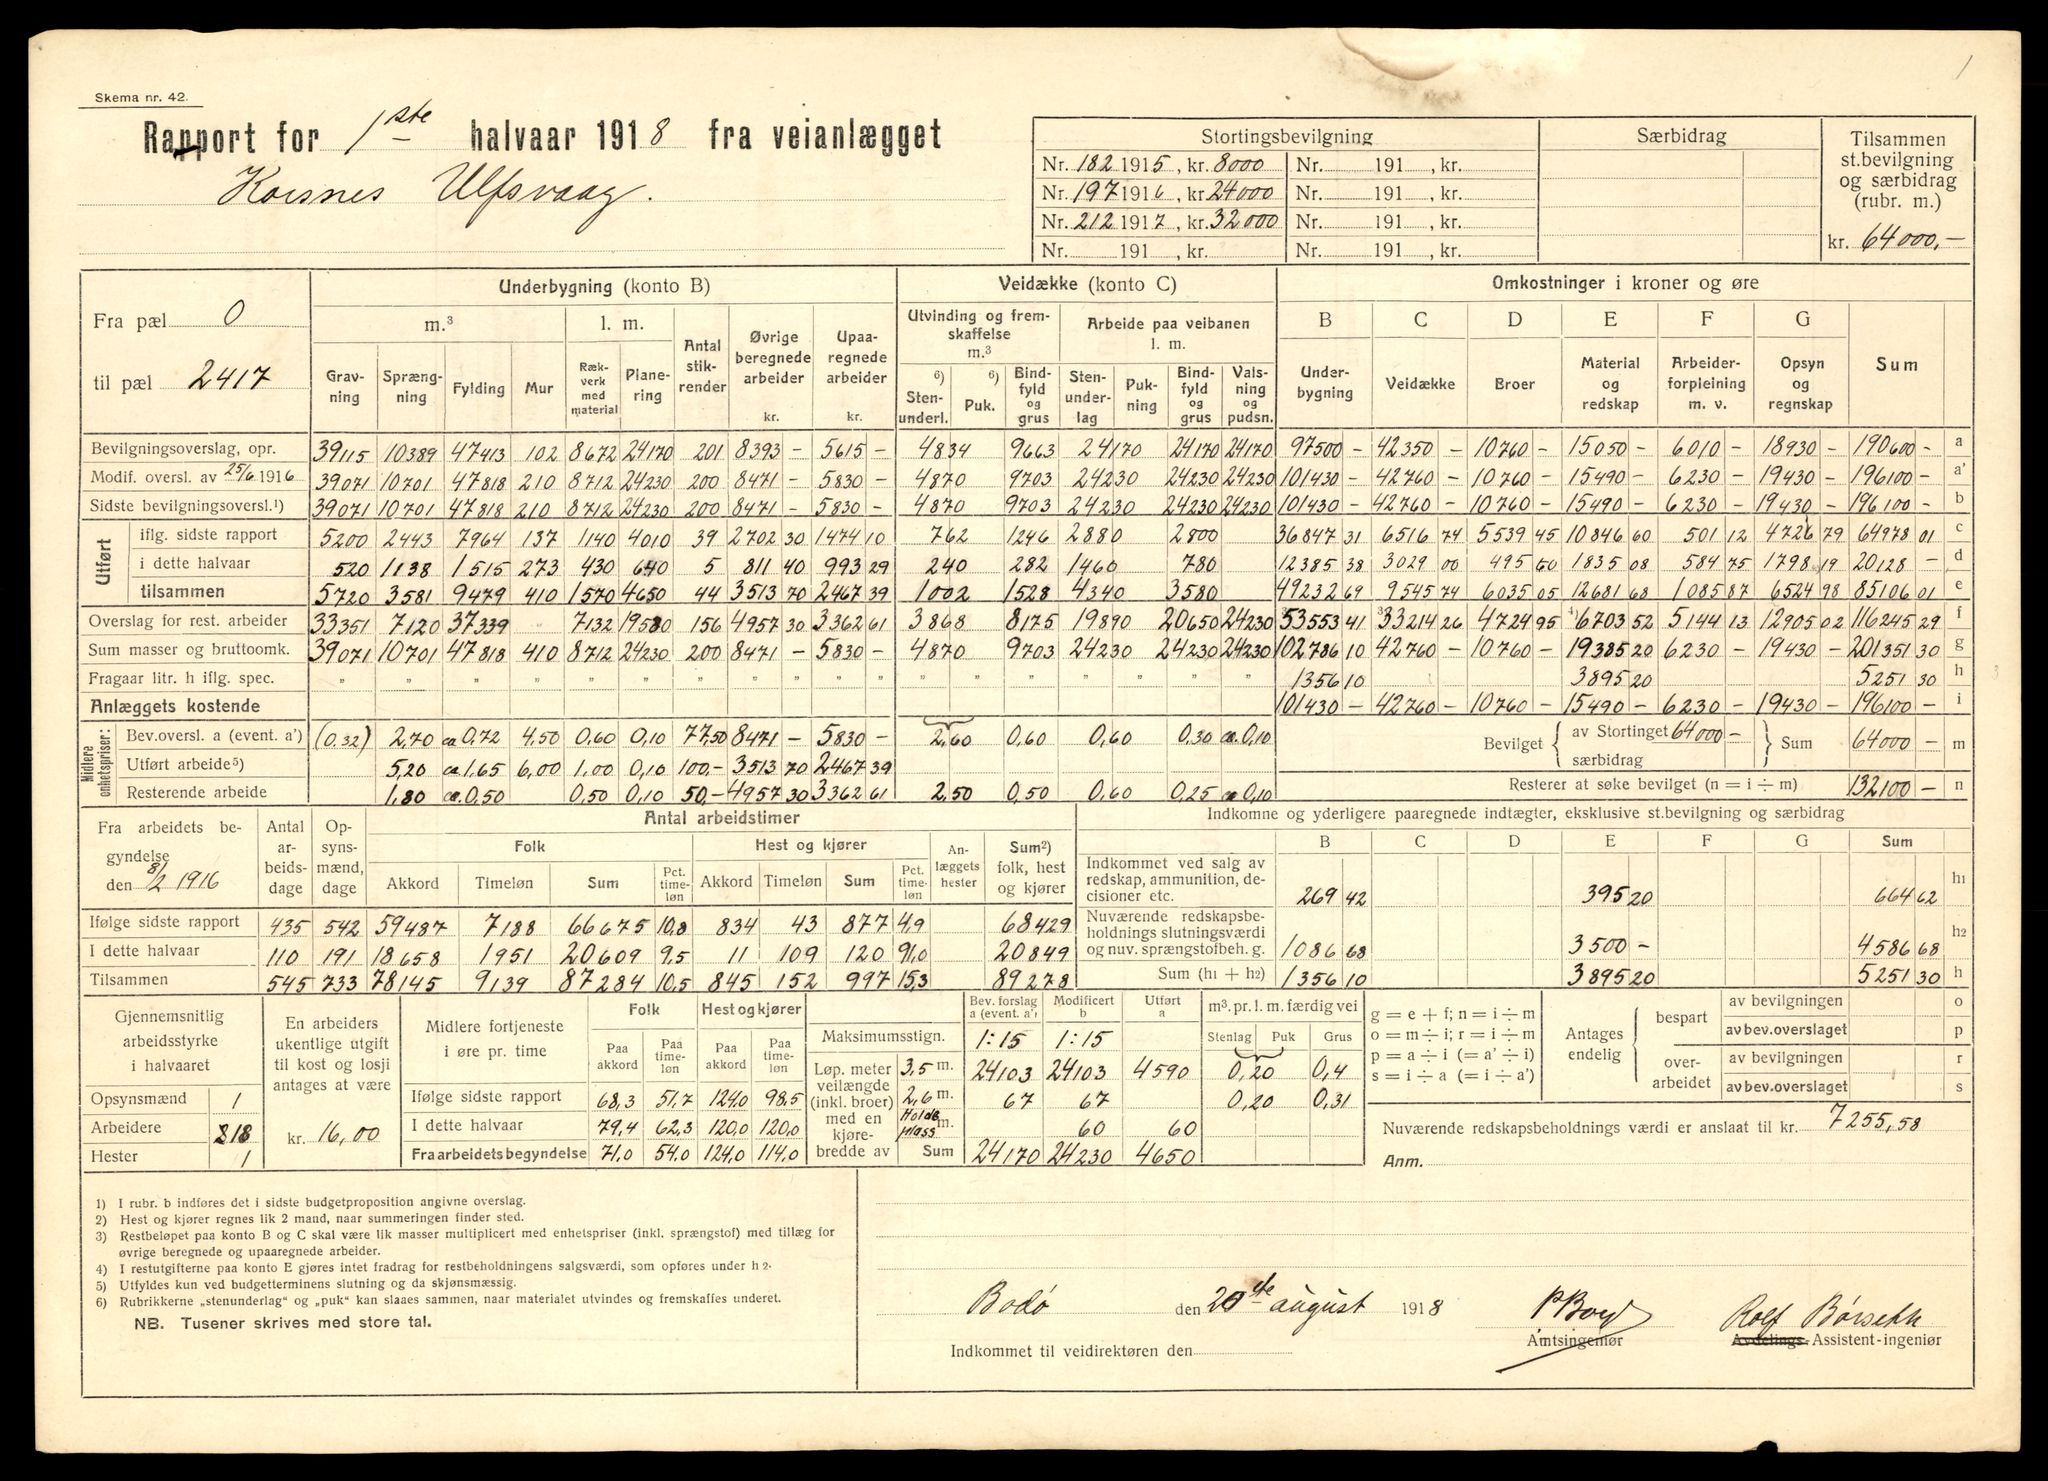 1
Skema nr. 42.
Rapport for 1ste halvaar 1918 fra veianlægget
Korsnes Ulfsvaag.
Stortingsbevilgning Særbidrag Tilsammen st.bevilgning og særbidrag (rubr. m.)
Nr. 182 1915, kr. 8000 Nr. 191 , kr.
Nr. 197 1916, kr. 24000 Nr. 191 , kr.
Nr. 212 1917, kr. 32000 Nr. 191 , kr.
Nr. 191 , kr. Nr. 191 , kr.
kr. 64000,-
Fra pæl 0
til pæl 2417
Underbygning (konto B) Veidække (konto C) Omkostninger i kroner og øre
m.³ l. m. Antal stikrender Øvrige beregnede arbeider kr. Upaaregnede arbeider kr.
Gravning Sprængning Fylding Mur Rækverk med material Planering
Utvinding og fremskaffelse m.³ Arbeide paa veibanen l. m.
6) Stenunderl. 6) Puk. Bindfyld og grus Stenunderlag Pukning Bindfyld og grus Valsning og pudsn.
B C D E F G Sum
Underbygning Veidække Broer Material og redskap Arbeiderforpleining m. v. Opsyn og regnskap
Bevilgningsoverslag, opr. 39115 10389 47413 102 8672 24170 201 8393 - 5615 - 4834 9663 24170 24170 24170 97500 - 42350 - 10760 - 15050 - 6010 - 18930 - 190600 - a
Modif. oversl. av 25/6 1916 39071 10701 47818 210 8712 24230 200 8471 - 5830 - 4870 9703 24230 24230 24230 101430 - 42760 - 10760 - 15490 - 6230 - 19430 - 196100 - a'
Sidste bevilgningsoversl.¹) 39071 10701 47818 210 8712 24230 200 8471 - 5830 - 4870 9703 24230 24230 24230 101430 - 42760 - 10760 - 15490 - 6230 - 19430 - 196100 - b
Utført
iflg. sidste rapport 5200 2443 7964 137 1140 4010 39 2702 30 1474 10 762 1246 2880 2800 36847 31 6516 74 5539 45 10846 60 501 12 4726 79 64978 01 c
i dette halvaar 520 1138 1515 273 430 640 5 811 40 993 29 240 282 1460 780 12385 38 3029 00 495 60 1835 08 584 75 1798 19 20128 - d
tilsammen 5720 3581 9479 410 1570 4650 44 3513 70 2467 39 1002 1528 4340 3580 49232 69 9545 74 6035 05 12681 68 1085 87 6524 98 85106 01 e
Overslag for rest. arbeider 33351 7120 37339 7132 19580 156 4957 30 3362 61 3868 8175 19890 20650 24230 53553 41 33214 26 4724 95 6703 52 5144 13 12905 02 116245 29 f
Sum masser og bruttoomk. 39071 10701 47818 410 8712 24230 200 8471 - 5830 - 4870 9703 24230 24230 24230 102786 10 42760 - 10760 - 19385 20 6230 - 19430 - 201351 30 g
Fragaar litr. h iflg. spec. " " " " " " " " " " " " " " 1356 10 3895 20 5251 30 h
Anlæggets kostende 101430 - 42760 - 10760 - 15490 - 6230 - 19430 - 196100 - i
Midlere enhetspriser:
Bev.oversl. a (event. a') (0.32) 2,70 ca 0,72 4,50 0,60 0,10 77,50 8471 - 5830 - 2,60 0,60 0,60 0,30 ca 0,10
Utført arbeide⁵) 5,20 ca 1,65 6,00 1,00 0,10 100,- 3513 70 2467 39
Resterende arbeide 1,80 ca. 0,50 0,50 0,10 50,- 4957 30 3362 61 2,50 0,50 0,60 0,25 ca 0,10
Bevilget av Stortinget 64000 - særbidrag Sum 64000 - m
Resterer at søke bevilget (n = i ÷ m) 132100 - n
Fra arbeidets begyndelse den 8/2 1916
Antal arbeidsdage Opsynsmænd, dage Antal arbeidstimer
Folk Hest og kjører Anlæggets hester Sum²) folk, hest og kjører
Akkord Timeløn Sum Pct. timeløn Akkord Timeløn Sum Pct. timeløn
Ifølge sidste rapport 435 542 59487 7188 66675 10,8 834 43 877 4,9 68429
I dette halvaar 110 191 18658 1951 20609 9,5 11 109 120 91,0 20849
Tilsammen 545 733 78145 9139 87284 10,5 845 152 997 15,3 89278
Indkomne og yderligere paaregnede indtægter, eksklusive st.bevilgning og særbidrag
B C D E F G Sum
Indkommet ved salg av redskap, ammunition, decisioner etc. 269 42 395 20 664 62 h₁
Nuværende redskapsbeholdnings slutningsværdi og nuv. sprængstofbeh. g. 1086 68 3500 - 4586 68 h₂
Sum (h₁ + h₂) 1356 10 3895 20 5251 30 h
Gjennemsnitlig arbeidsstyrke i halvaaret
Opsynsmænd 1
Arbeidere 818
Hester 1
En arbeiders ukentlige utgift til kost og losji antages at være
kr. 16,00
Midlere fortjeneste i øre pr. time
Folk Hest og kjører
Paa akkord Paa timeløn Paa akkord Paa timeløn
Ifølge sidste rapport 68,3 51,7 124,0 98,5
I dette halvaar 79,4 62,3 120,0 120,0
Fra arbeidets begyndelse 71,0 54,0 124,0 114,0
Bev. forslag a (event. a') Modificert b Utført a
Maksimumsstign. 1:15 1:15
Løp. meter veilængde (inkl. broer) med en kjørebredde av
3,5 m. 24103 24103 4590
2,6 m. 67 67
Holdeplass m. 60 60
Sum 24170 24230 4650
m³. pr. l. m. færdig vei
Stenlag Puk Grus
0,20 0,4
0,20 0,31
g = e + f; n = i ÷ m
o = m ÷ i; r = i ÷ m
p = a ÷ i (= a' ÷ i)
s = i ÷ a (= i ÷ a')
Antages endelig
bespart av bevilgningen o
av bev.overslaget p
overarbeidet av bevilgningen r
av bev.overslaget s
Nuværende redskapsbeholdnings værdi er anslaat til kr. 7255,58
Anm.
1) I rubr. b indføres det i sidste budgetproposition angivne overslag.
2) Hest og kjører regnes lik 2 mand, naar summeringen finder sted.
3) Restbeløpet paa konto B og C skal være lik masser multiplicert med enhetspriser (inkl. sprængstof) med tillæg for
øvrige beregnede og upaaregnede arbeider.
4) I restutgifterne paa konto E gjøres intet fradrag for restbeholdningens salgsværdi, som opføres under h 2.
5) Utfyldes kun ved budgetterminens slutning og da skjønsmæssig.
6) Rubrikkerne „stenunderlag“ og „puk“ kan slaaes sammen, naar materialet utvindes og fremskaffes underet.
NB. Tusener skrives med store tal.
Bodö den 20de august 1918
Amtsingeniør
Rolf Børseth
Avdelings- Assistent-ingeniør
Indkommet til veidirektøren den